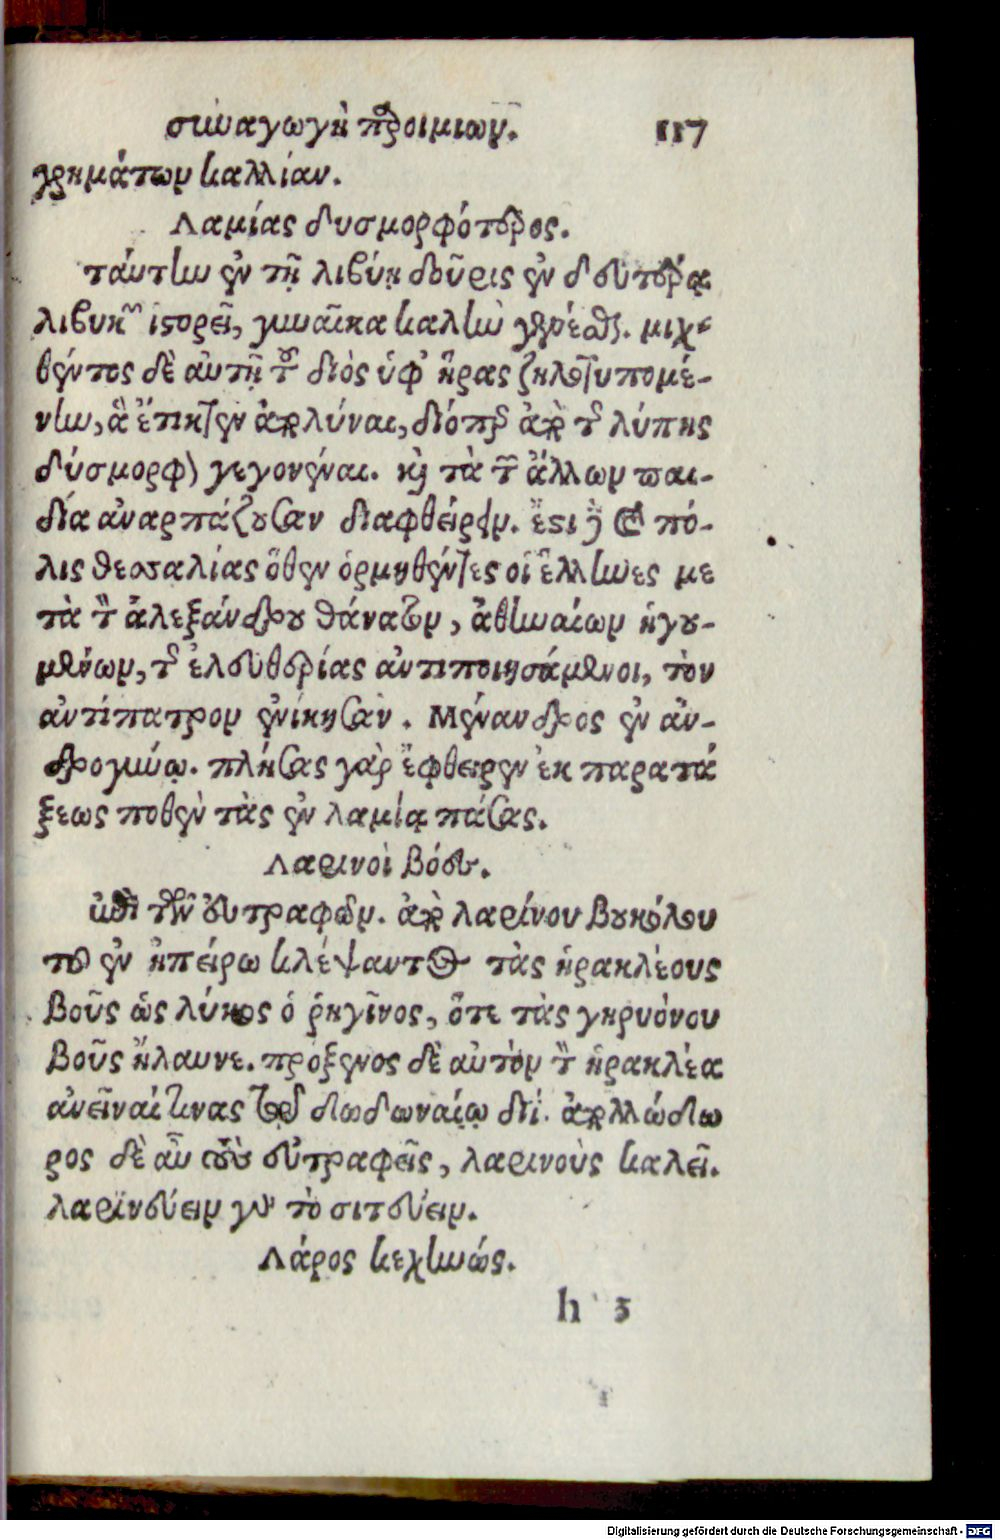 συναγωγὴ παροιμιῶν. 117
χρημάτων καλλίαν.
Λαμίας δυσμορφότερος.
ταύτην ἐν τῇ λιβύῃ δοῦρις ἐν δευτέρᾳ
λιβυκῶν ἱστορεῖ, γυναῖκα καλὴν γενέσθαι. μιχ-
θέντος δὲ αὐτῇ τοῦ διὸς ὑφ' ἥρας ζηλοτυπομέ-
νην, ἃ ἔτικτεν ἀπολύναι, διόπερ ἀπὸ τῆς λύπης
δύσμορφον γεγονέναι. καὶ τὰ τῶν ἄλλων παι-
δία ἀναρπάζουσαν διαφθείρειν. ἔστι δὲ καὶ πό-
λις θεσσαλίας ὅθεν ὁρμηθέντες οἱ ἕλληνες με
τὰ τὸν ἀλεξάνδρου θάνατον, ἀθηναίων ἡγου-
μένων, τῆς ἐλευθερίας ἀντιποιησάμενοι, τὸν
ἀντίπατρον ἐνίκησαν. Μένανδρος ἐν ἀν-
δρογύνῳ. πλήσας γὰρ ἔφθειρεν ἐκ παρατά
ξεως ποθὲν τὰς ἐν λαμίᾳ πάσας.
Λαρινοὶ βόες.
ἐπὶ τῶν εὐτραφῶν. ἀπὸ λαρίνου βουκόλου
τοῦ ἐν ἠπείρῳ κλέψαντος τὰς ἡρακλέους
βοῦς ὡς λύκος ὁ ῥηγῖνος, ὅτε τὰς γηρυόνου
βοῦς ἤλαυνε. πρόξενος δὲ αὐτὸν τὸν ἡρακλέα
ἀνεῖναί τινας τῷ δωδωναίῳ διί. ἀπολλόδω
ρος δὲ αὖ τοὺς εὐτραφεῖς, λαρινοὺς καλεῖ.
λαρινεύειν γὰρ τὸ σιτεύειν.
Λάρος κεχηνώς.
h 3
Digitalisierung gefördert durch die Deutsche Forschungsgemeinschaft - DFG